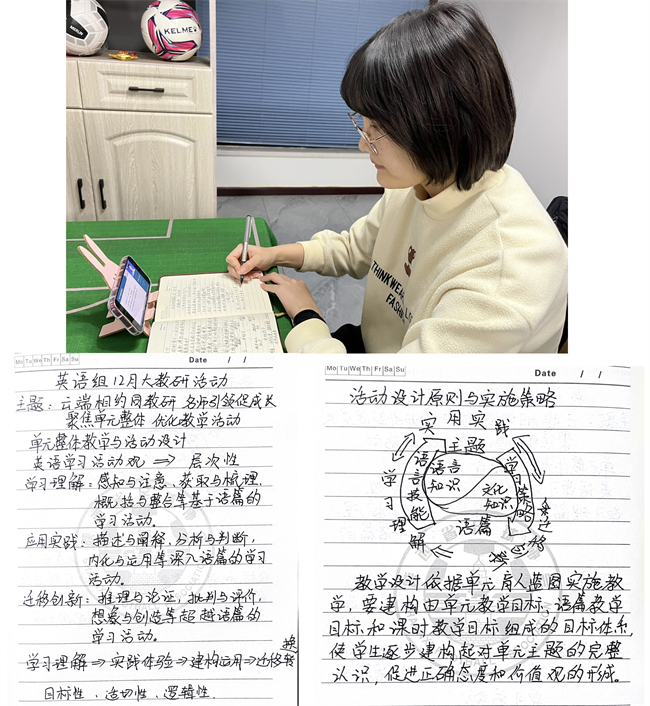 KELME
THINKWEAR
FASH
Mo Tu We Th Fr Sa Su
Date / /
英语组12月大教研活动
主题：云端相约同教研 名师引领促成长
聚焦单元整体 优化教学活动
单元整体教学与活动设计
英语学习活动观 ⇒ 层次性
学习理解：感知与注意、获取与梳理、
概括与整合等基于语篇的
学习活动。
应用实践：描述与阐释、分析与判断，
内化与运用等深入语篇的学习
活动。
迁移创新：推理与论证，批判与评价，
想象与创造等超越语篇的
学习活动。
学习理解⇒实践体验⇒建构运用⇒迁移转换
目的性、适切性、逻辑性.
Mo Tu We Th Fr Sa Su
Date / /
活动设计原则与实施策略
实用实践
主题
语言技能
语言知识
文化知识
学习策略
语篇
学习理解
迁移
教学设计依据单元育人蓝图实施教
学，要建构由单元教学目标、语篇教学
目标和课时教学目标组成的目标体系，
使学生逐步建构起对单元主题的完整
认识，促进正确态度和价值观的形成。